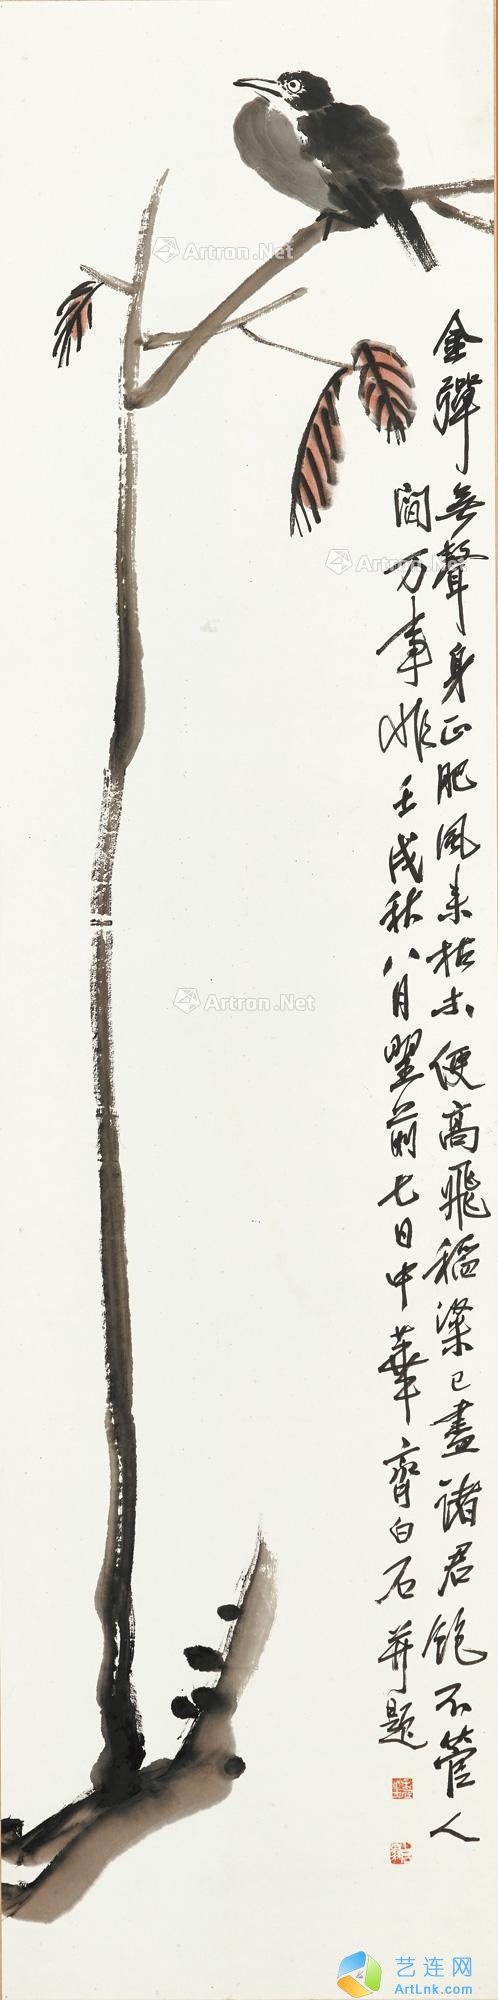 金彈無聲身正肥風未枯去便高飛稻粱已盡諸君飽不管人
間万事非壬戌秋八月望前七日中華齊白石並題
Artron.Net
Artron.Net
Artron.Net
艺连网
ArtLnk.com